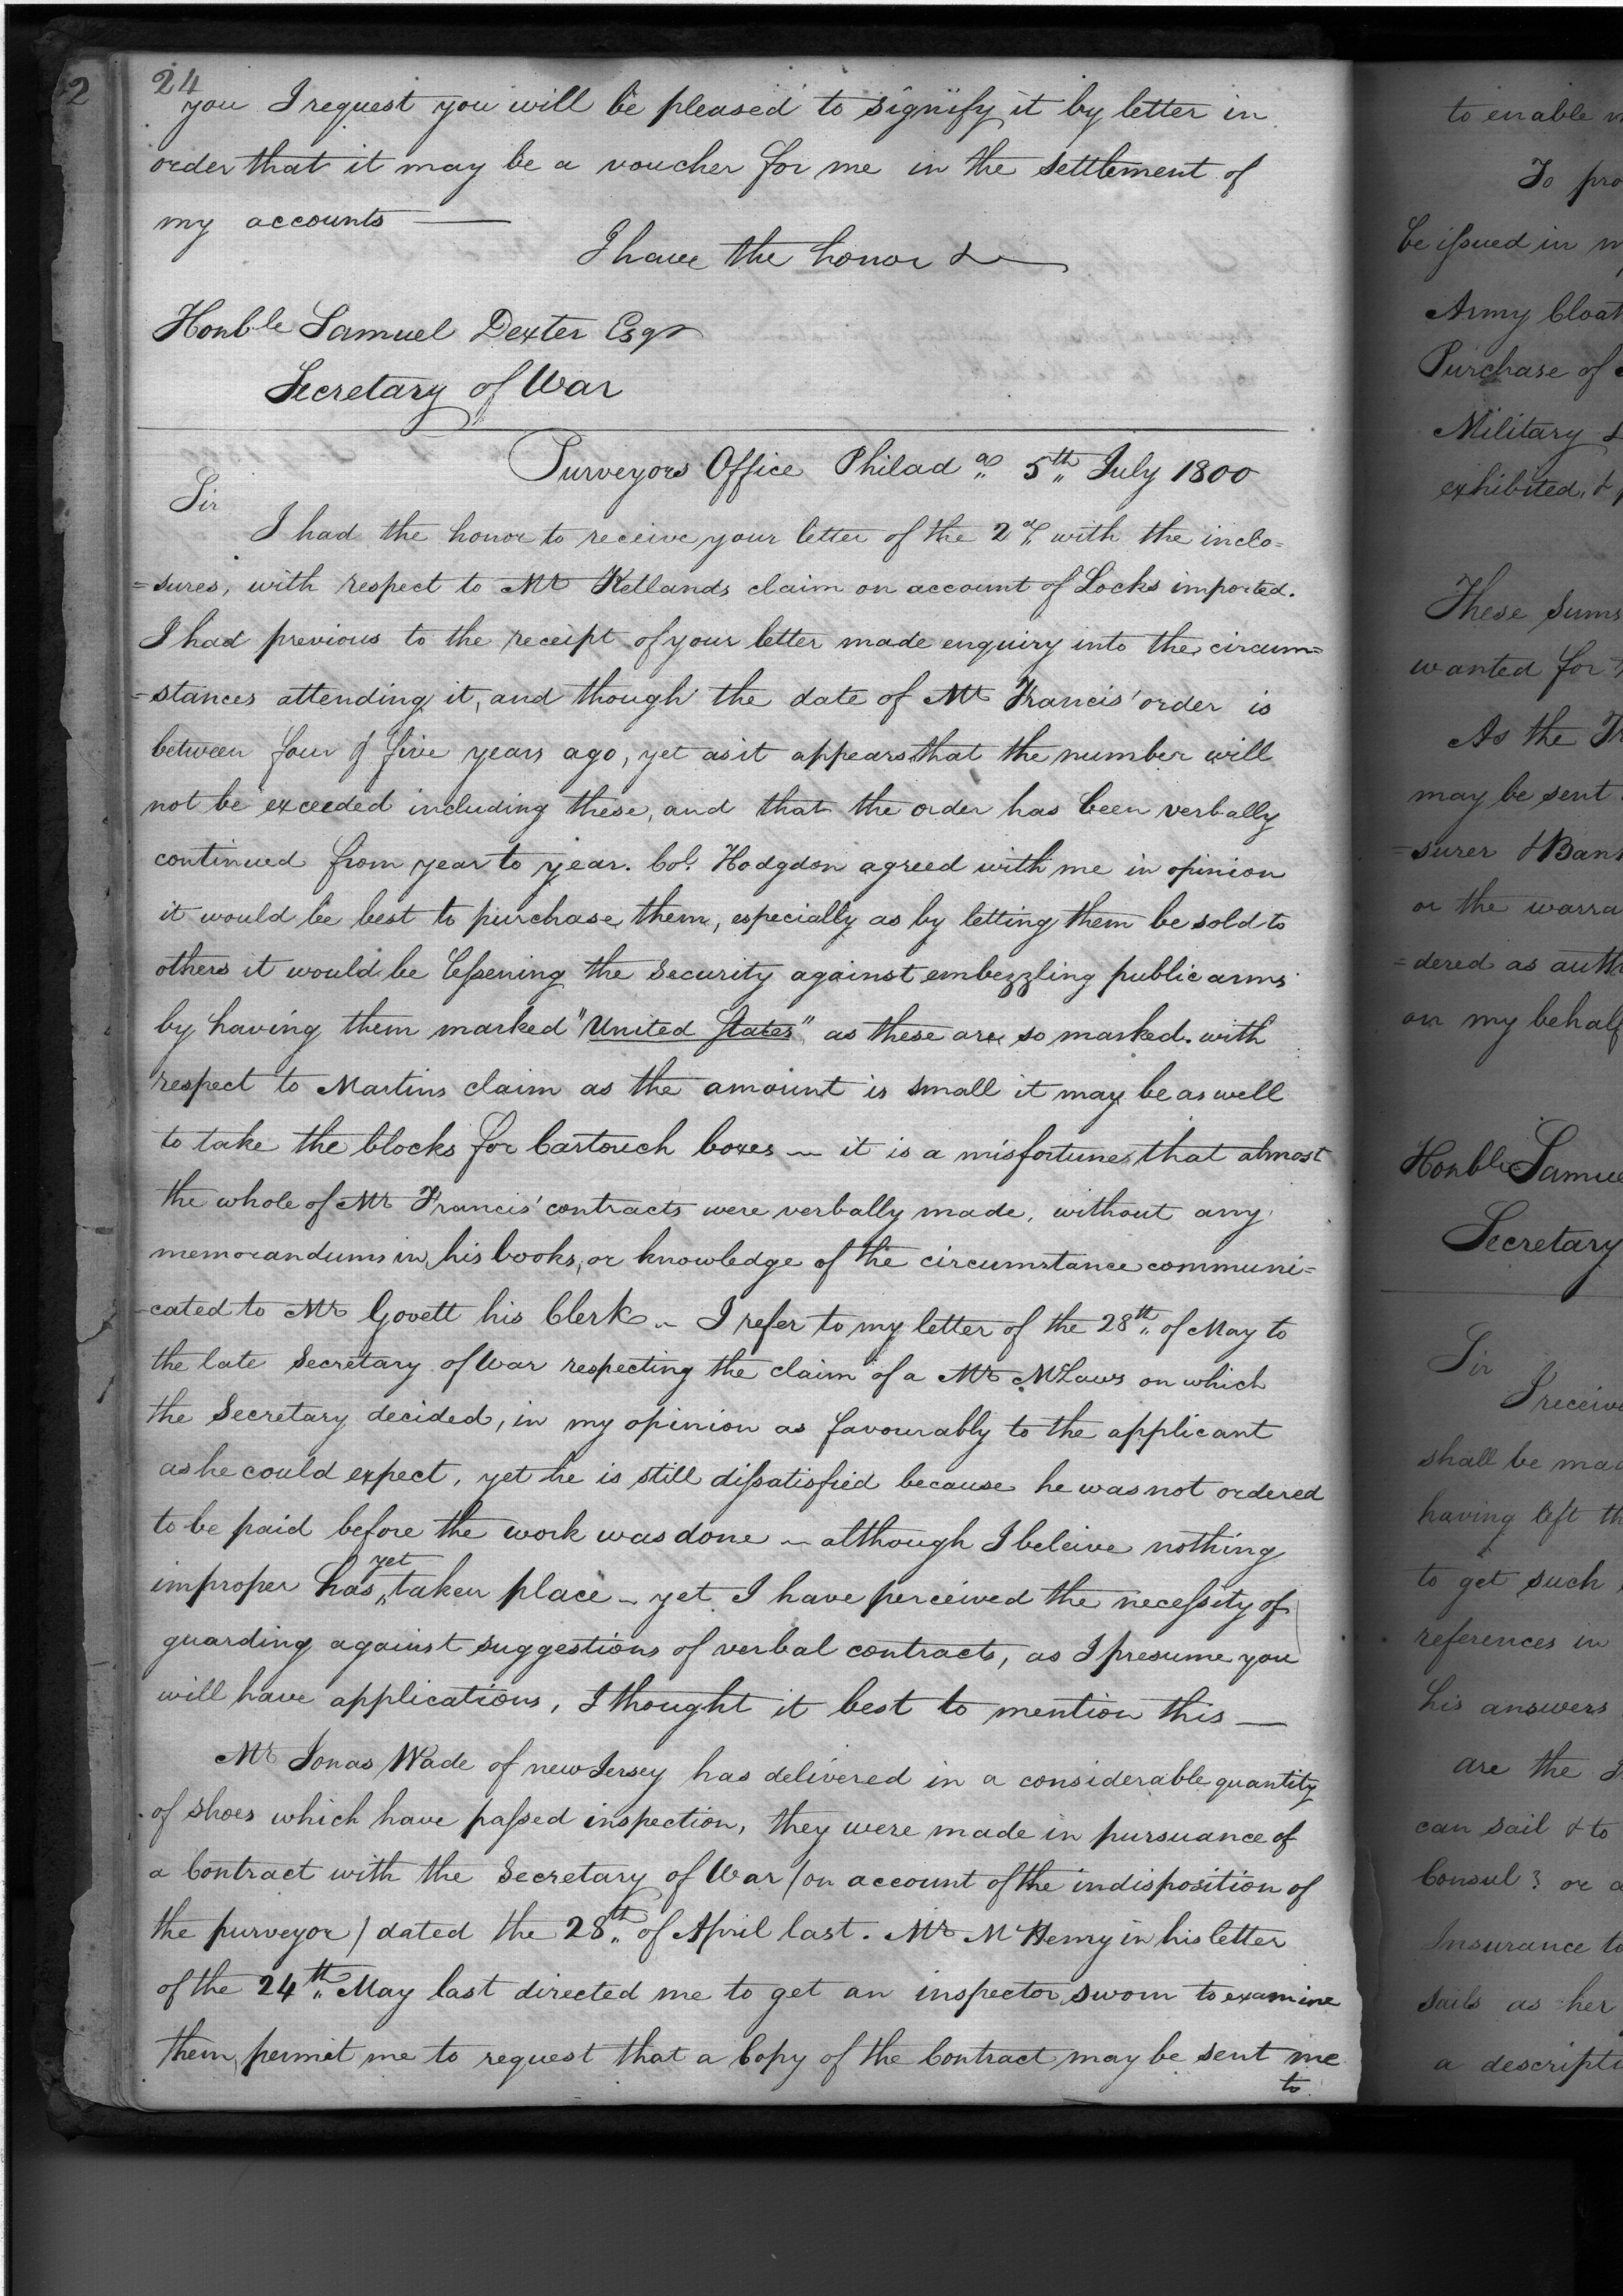 2
24
you I request you will be pleased to signify it by letter in
order that it may be a voucher for me in the settlement of
my accounts —
I have the honor &
Honble Samuel Dexter Esqr
Secretary of War
Purveyors Office Philad a 5th July 1800
Sir
I had the honor to receive your letter of the 2d with the inclo=
=sures, with respect to Mr Ketlands claim on account of Locks imported.
I had previous to the receipt of your letter made enquiry into the circum=
=stances attending it, and though the date of Mr Francis' order is
between four & five years ago, yet as it appears that the number will
not be exceeded including these, and that the order has been verbally
continued from year to year. Col. Hodgdon agreed with me in opinion
it would be best to purchase them, especially as by letting them be sold to
others it would be lessening the security against embezzling public arms
by having them marked "United States" as these are so marked. with
respect to Martins claim as the amount is small it may be as well
to take the blocks for Cartouch boxes — it is a misfortune that almost
the whole of Mr Francis' contracts were verbally made, without any
memorandums in his books, or knowledge of the circumstance communi=
-cated to Mr Govett his Clerk — I refer to my letter of the 28th of May to
the late Secretary of War respecting the claim of a Mr McLaws on which
the Secretary decided, in my opinion as favourably to the applicant
as he could expect, yet he is still dissatisfied because he was not ordered
to be paid before the work was done — although I beleive nothing
improper has yet taken place — yet I have perceived the necessity of
guarding against suggestions of verbal contracts, as I presume you
will have applications, I thought it best to mention this —
Mr Jonas Wade of new Jersey has delivered in a considerable quantity
of shoes which have passed inspection, they were made in pursuance of
a Contract with the Secretary of War /on account of the indisposition of
the purveyor/ dated the 28th of April last. Mr McHenry in his letter
of the 24th May last directed me to get an inspector sworn to examine
them, permit me to request that a Copy of the Contract may be sent me
to
to enable
To pro
be issued in
Army Cloat
Purchase of
Military &
exhibited, &
These Sums
wanted for
As the
may be sent
=surer & Bank
or the warra
=dered as auth
on my behalf
Honble Samue
Secretary
Sir
I receive
shall be mad
having left th
to get such
references in
his answers
are the
can sail & to
Consul? or
Insurance to
sails as her
a descripti